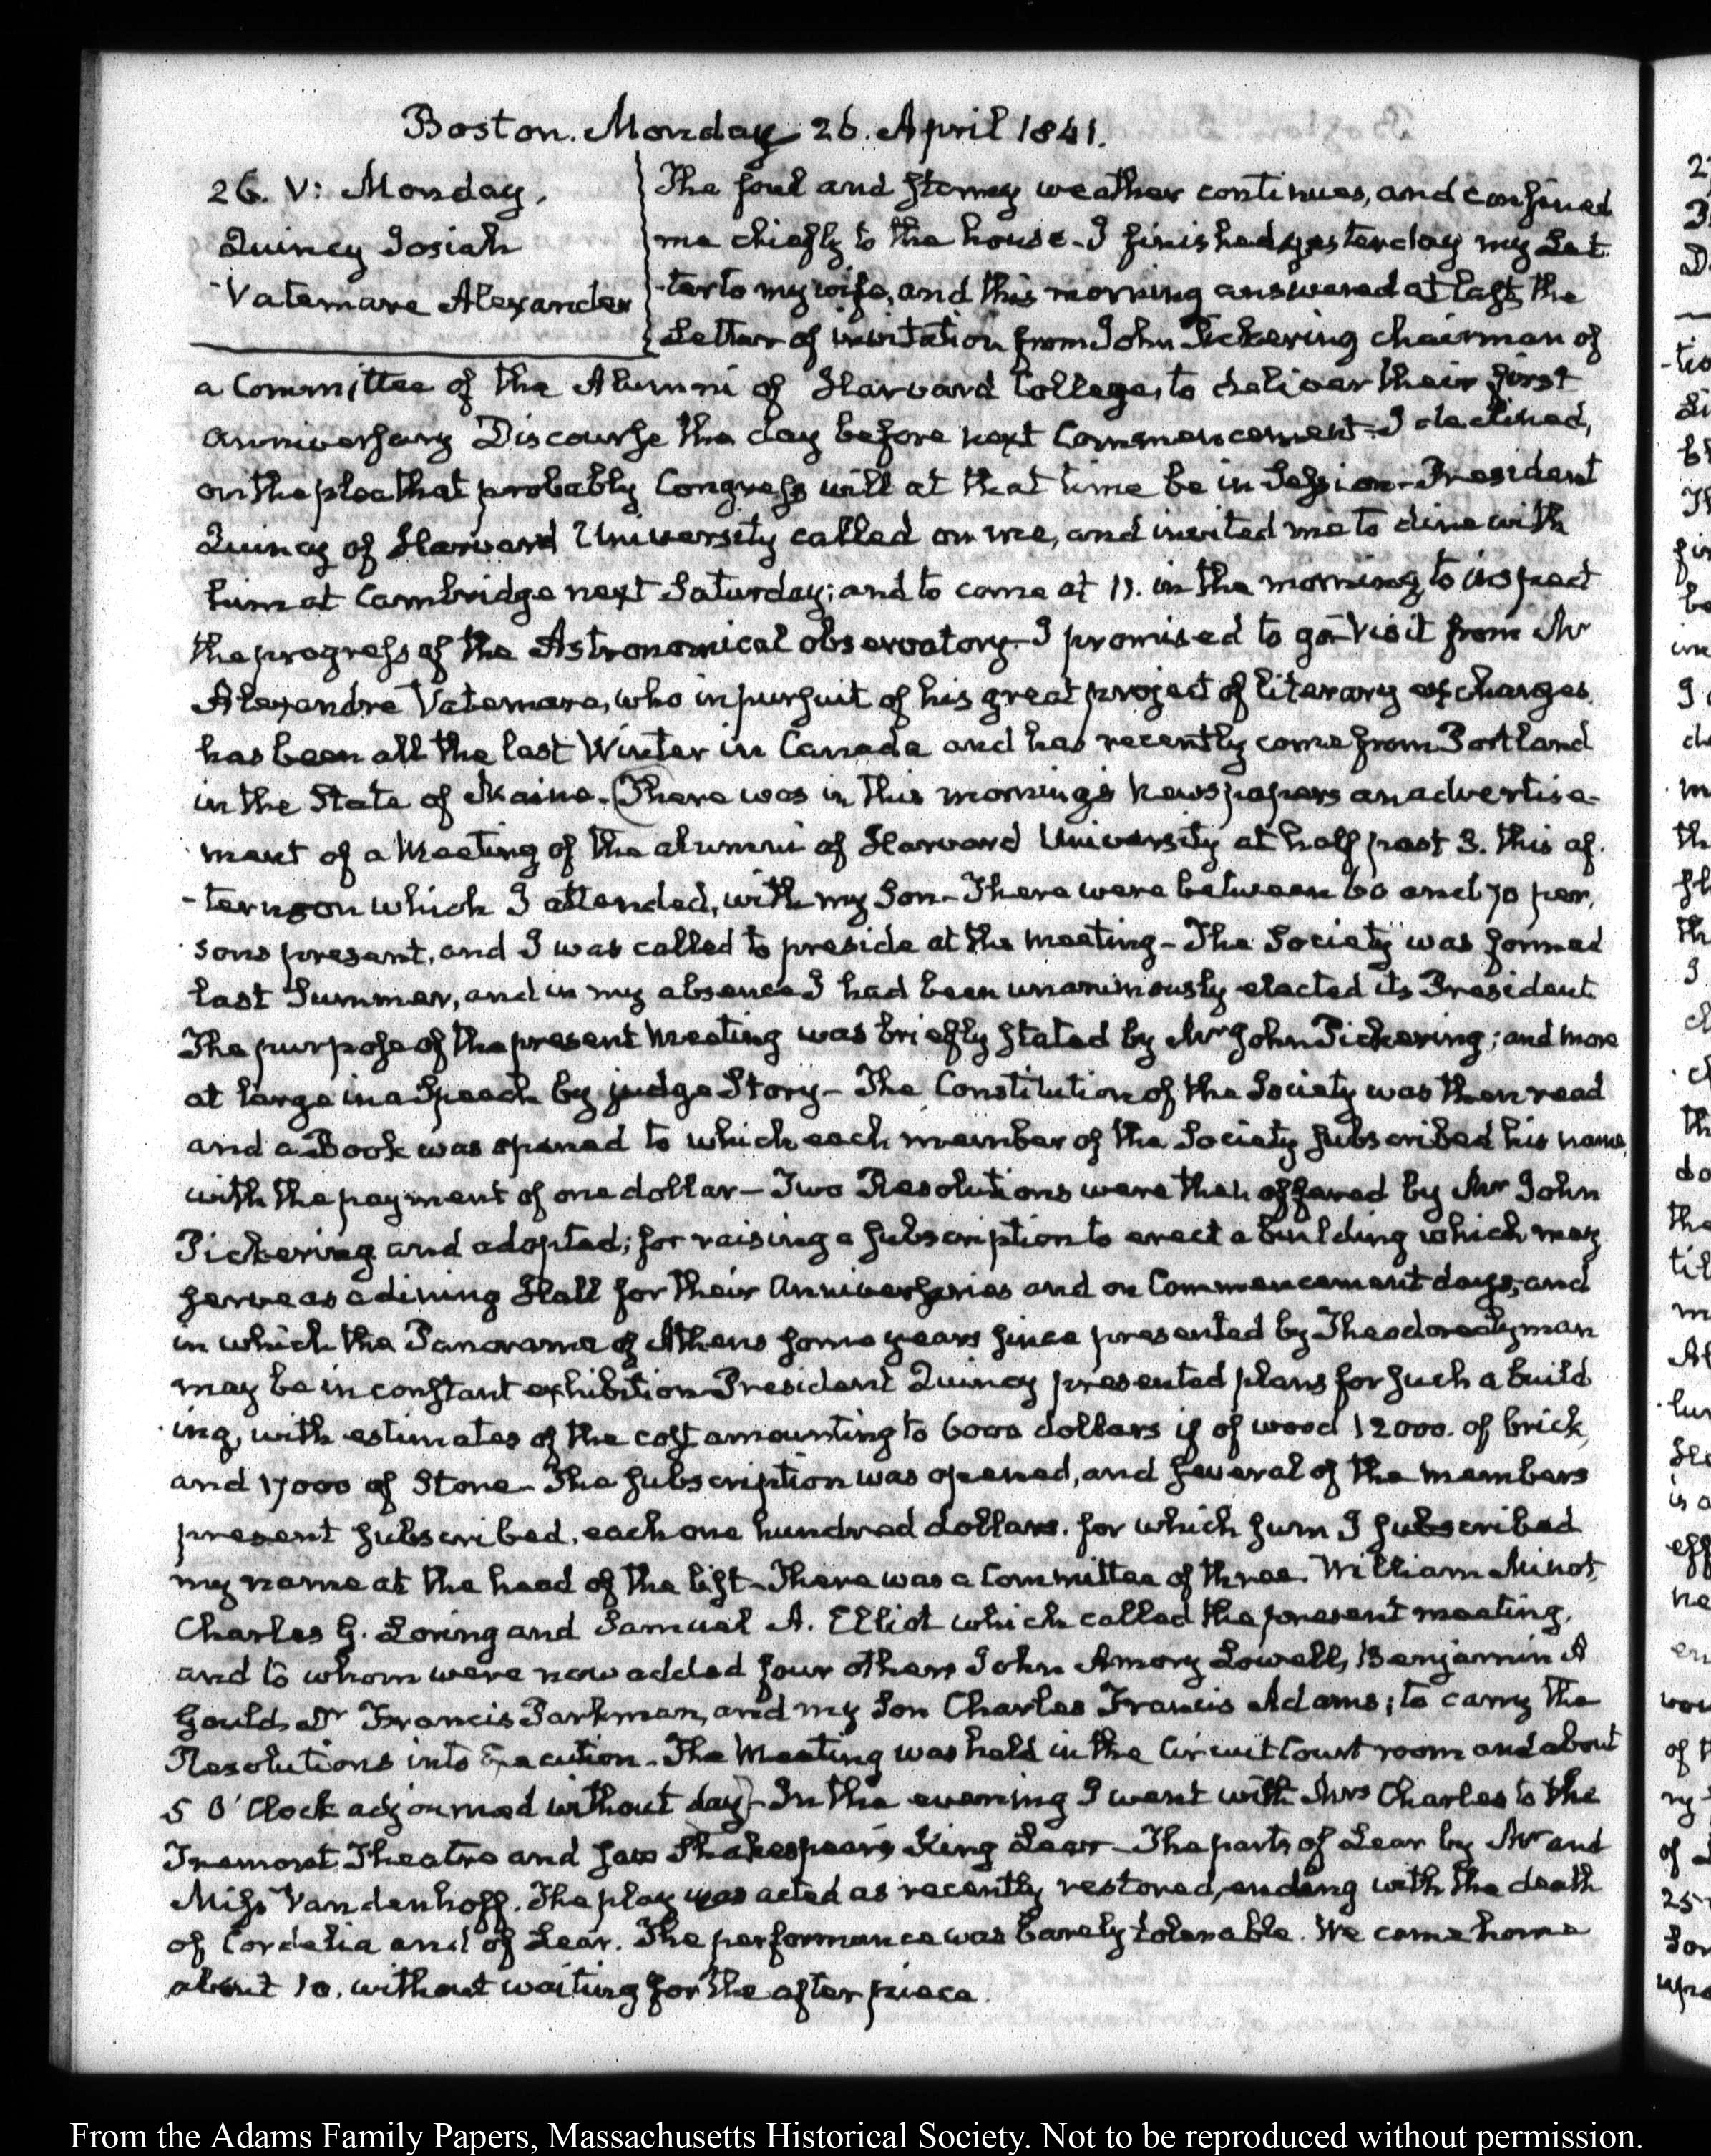 Boston. Monday 26. April 1841.
26. V: Monday.
Quincy Josiah
Vatemare Alexander
The foul and stormy weather continues, and confined
me chiefly to the house - I finished yesterday my Let
-ter to my wife, and this morning answered at last, the
Letter of invitation from John Pickering chairman of
a Committee of the Alumni of Harvard College, to deliver their first
anniversary Discourse the day before next Commencement - I declined,
on the plea that probably Congress will at that time be in Session - President
Quincy of Harvard University called on me, and invited me to dine with
him at Cambridge next Saturday; and to come at 11. in the morning, to inspect
the progress of the Astronomical observatory - I promised to go - Visit from Mr
Alexandre Vatemare, who in pursuit of his great project of literary exchanges
has been all the last Winter in Canada and has recently come from Portland
in the State of Maine - (There was in this morning's Newspapers an advertise-
ment of a Meeting of the alumni of Harvard University at half past 3. this af.
-ternoon which I attended, with my Son - There were between 60 and 70 per.
sons present, and I was called to preside at the meeting - The Society was formed
last Summer, and in my absence I had been unanimously elected its President
The purpose of the present Meeting was briefly stated by Mr John Pickering; and more
at large in a Speech by judge Story - The Constitution of the Society was then read
and a Book was opened to which each member of the Society subscribed his name,
with the payment of one dollar - Two Resolutions were then offered by Mr John
Pickering and adopted; for raising a subscription to erect a building which may
serve as a dining Hall for their Anniversaries and on Commencement days; and
in which the Panorama of Athens some years since presented by Theodore Lyman
may be in constant exhibition - President Quincy presented plans for such a build
-ing, with estimates of the cost amounting to 6000 dollars if of wood 12000. of brick,
and 17000 of Stone - The subscription was opened, and several of the members
present subscribed, each one hundred dollars. for which sum I subscribed
my name at the head of the list - There was a Committee of three. William Minot,
Charles G. Loring and Samuel A. Elliot which called the present meeting,
and to whom were now added four others John Amory Lowell, Benjamin A
Gould, Dr Francis Parkman, and my Son Charles Francis Adams; to carry the
Resolutions into Execution - The Meeting was held in the Circuit Court room and about
5 O'Clock adjourned without day) - In the evening I went with Mrs Charles to the
Tremont Theatre and saw Shakespear's King Lear - The parts of Lear by Mr and
Miss Vandenhoff. The play was acted as recently restored, ending with the death
of Cordelia and of Lear. The performance was barely tolerable. We came home
about 10. without waiting for the after piece.
From the Adams Family Papers, Massachusetts Historical Society. Not to be reproduced without permission.